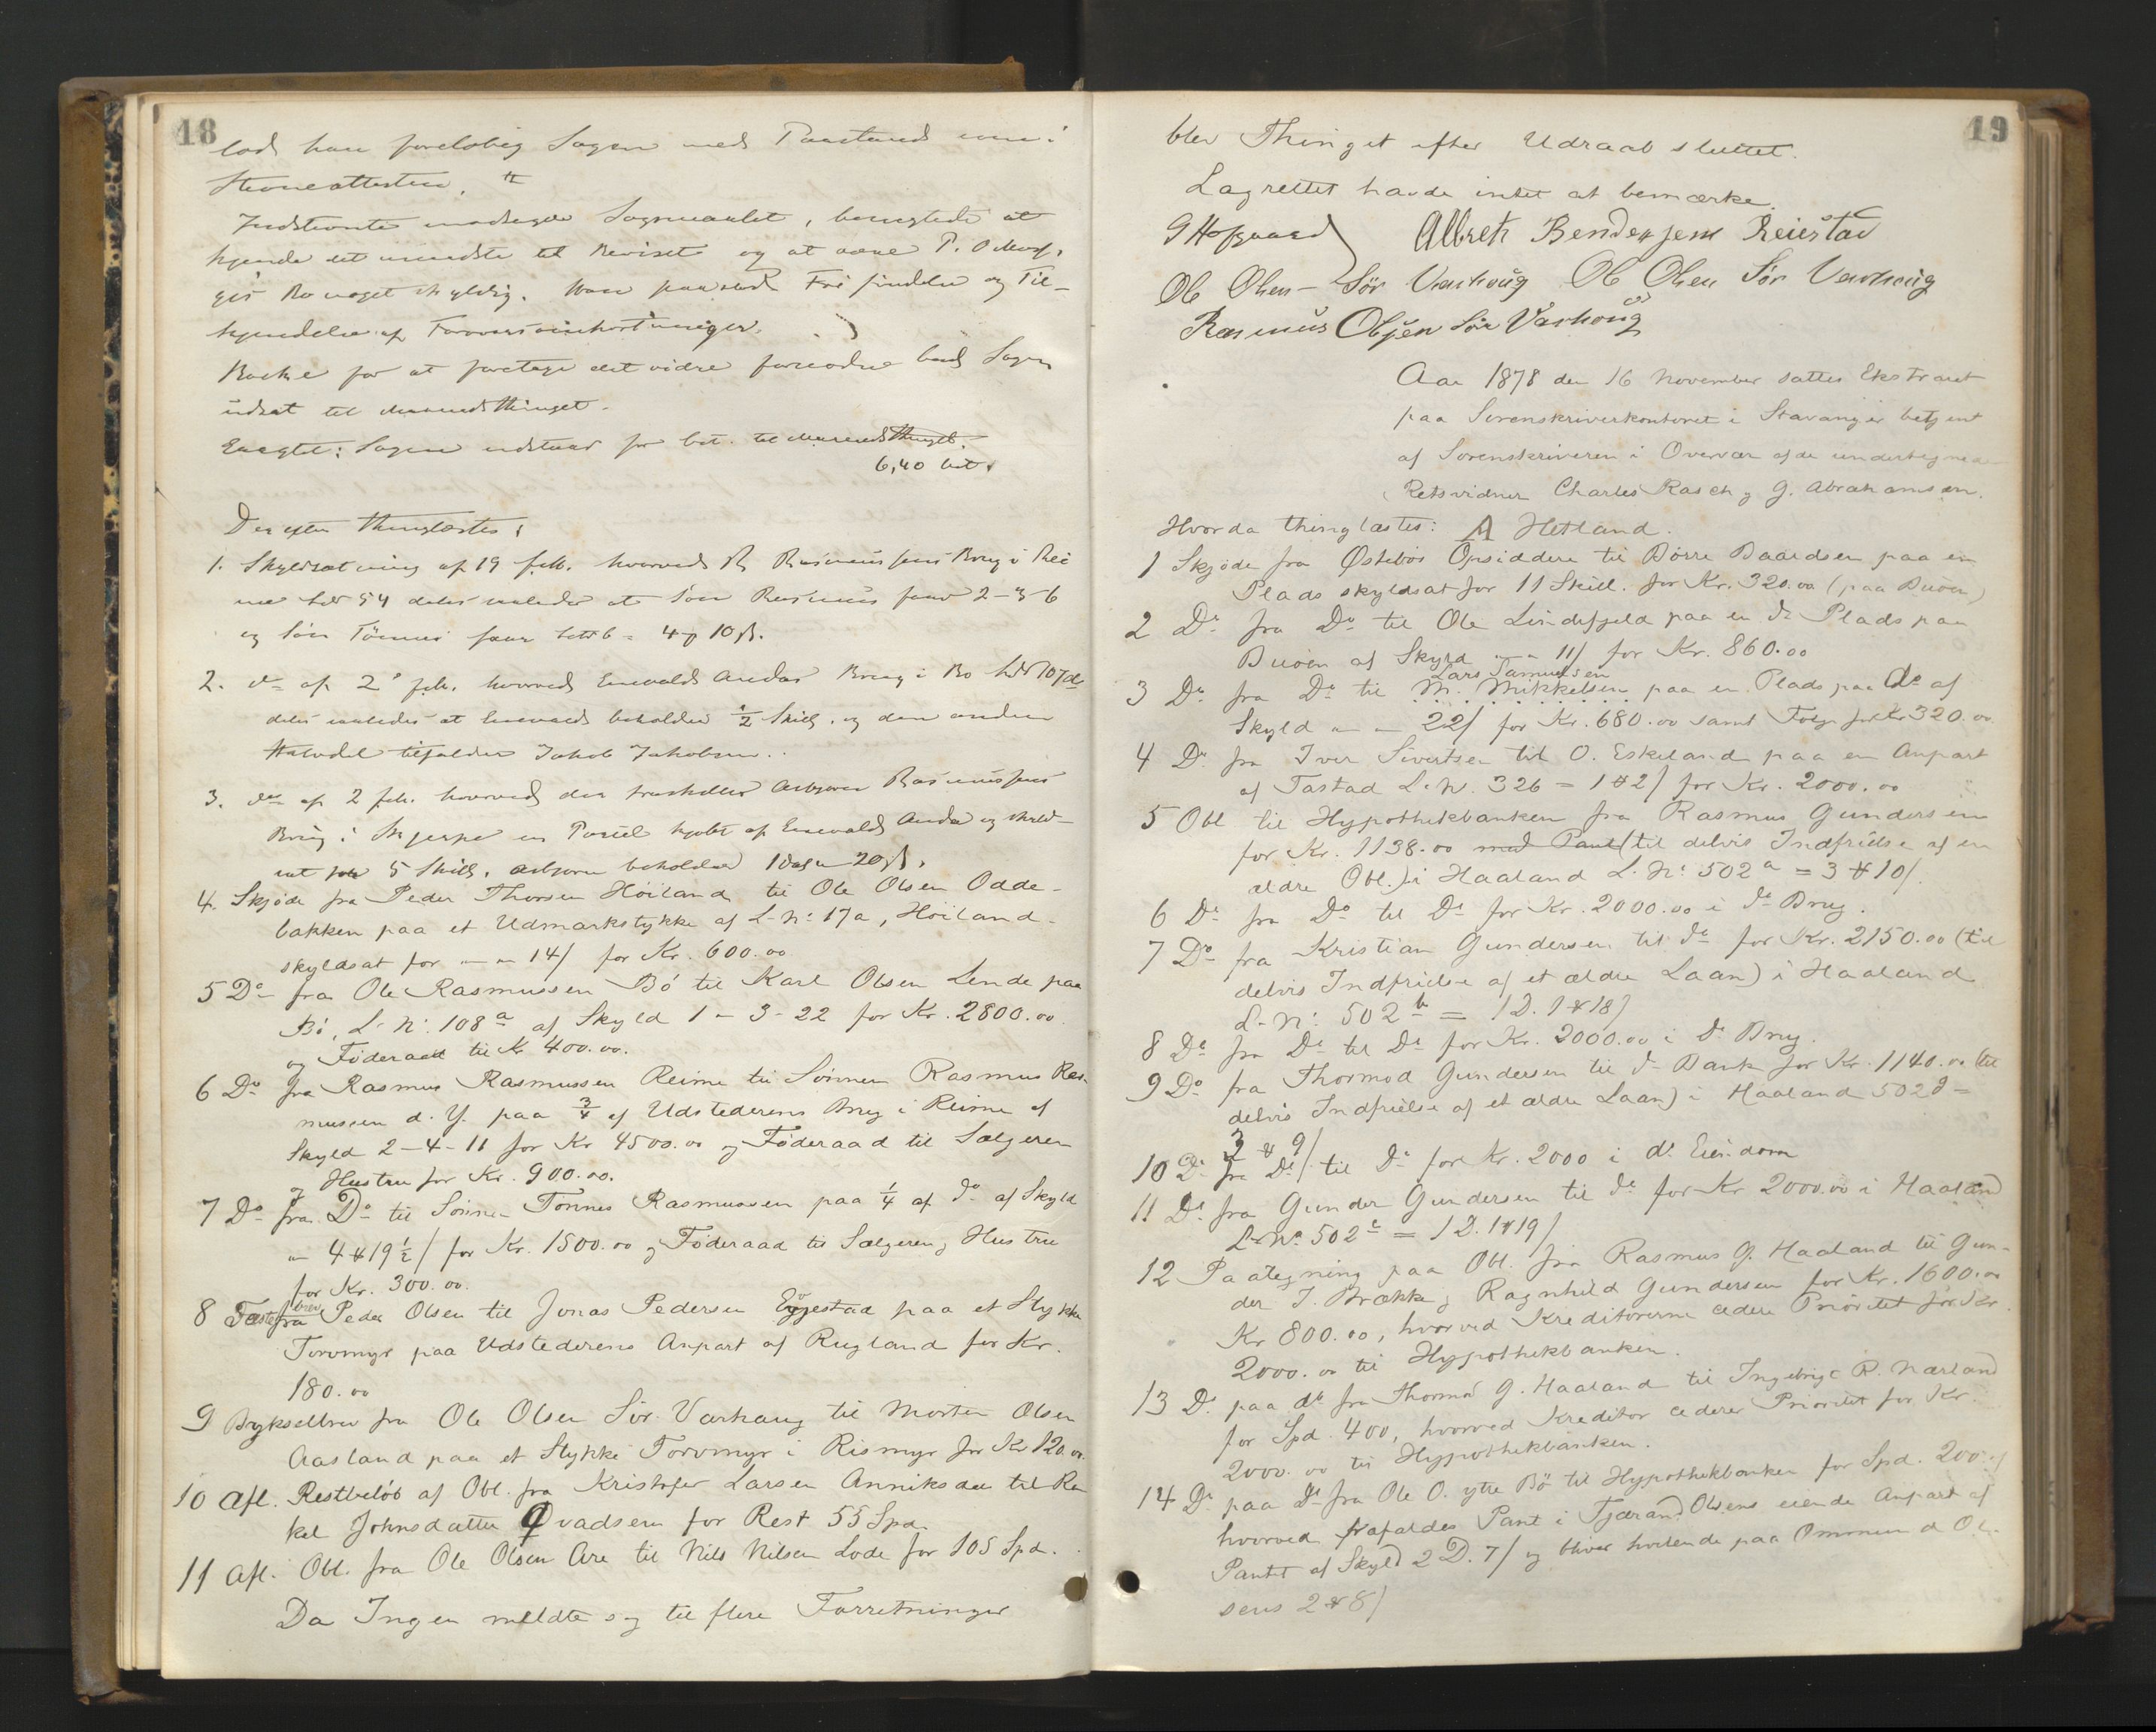 18
lod han foreløbig Sagen med Paastand
Indstevnte modsagde Søgsmaalet, benegtede at
kjende det mindste til Beviset og at være P. O.
Bo noget skyldig. Han paastod Frifindelse og Til-
kjendelse af
for at foretage det videre fornødne bad Sagen
udsat til Maanedsthinget.
Eragtet: Sagen udstaar for bet. til Maanedsthinget.
6,40 bet.
Derefter thinglæstes:
1. Skyldsætning af 19 febr. hvorved R. Rasmussens Brug i Rei
me 54 deles saaledes at Søn Rasmus faar 2-3-6
og Søn Tønnes faar 4 10 β.
2. do af 2 feb. hvorved Enevald Andas Brug i Bø 107de
deles saaledes at Enevald beholder ½ Skill. og den anden
Halvdel tilfalder Jakob Jakobsen.
3. do af 2 feb. hvorved der fraskilles Asbjørn Rasmussens
Brug i en Parcel kjøbt af Enevald Anda og skyld-
sat for 5 Skill. Asbjørn beholder 1 Dal 20 β.
4. Skjøde fra Peder Thorsen Höiland til Ole Olsen Odde-
bakken paa et Udmarkstykke af L-N: 17a, Höiland
skyldsat for " " 14/ for Kr. 600.00
5 Do fra Ole Rasmussen Bö til Karl Olsen Lende paa
Bö, L-N: 108a af Skyld 1 - 3 - 22 for Kr. 2800.00
og Föderaad til Kr 400.00.
6 Do fra Rasmus Rasmussen Reime til Sönnen Rasmus Ras-
mussen d. Y. paa 3/4 af Udstederens Brug i Reime af
Skyld 2-4-11 for Kr 4500.00 og Föderaad til Sælgeren
og Hustru for Kr. 900.00.
7 Do fra Do til Sönnen Tönnes Rasmussen paa 1/4 af do af Skyld
" 4 # 19½/ for Kr. 1500.00 og Föderaad til Sælgeren og Hustru
for Kr. 300.00.
8 Fæstebrev fra Peder Olsen til Jonas Pedersen paa et Stykke
Torvmyr paa Udstederens Anpart af Rugland for Kr.
180.00
9 Bygselbrev fra Ole Olsen Sör Varhaug til Morten Olsen
Aasland paa et Stykke Torvmyr i Rismyr for Kr 120.00.
10 Afl. Restbelöb af Obl. fra Kristofer Larsen Anniksdal til Ra
kel Johnsdatter Qvadsem for Rest 55 Spd.
11 Afl. Obl. fra Ole Olsen Are til Nils Nilsen Lode for 105 Spd.
Da Ingen meldte sig til flere Forretninger
19
blev Thinget efter Udraab sluttet.
Lagrettet havde intet at bemærke.
Albreth Bendexsen Reiestad
Ole Olsen Sör Varhoug Ole Olsen Sör Varhoug
Rasmus Olsen Sör Varhoug
Aar 1878 den 16 November sattes Ekstraret
paa Sorenskriverkontoret i Stavanger betjent
af Sorenskriveren i Overvær af de undertegnede
Retsvidner Charles Rasch og G. Abrahamsen.
Hvorda thinglæstes: A Hetland.
1 Skjöde fra Østebös Opsiddere til Börre Baardsen paa en
Plads skyldsat for 11 Skill. for Kr. 320.00 (paa Buöen)
2 Do fra Do til Ole Lindefjeld paa en do Plads paa
Buöen af Skyld " " 11/ for Kr. 860.00
Lars Samuelsen
3 Do fra Do til M. Mikkelsen paa en Plads paa do af
Skyld " " 22/ for Kr. 680.00 samt Folge for Kr 320.00
4 Do fra Iver Sivertsen til O. Eskeland paa en Anpart
af Tastad L.N. 326 = 1 # 2/ for Kr. 2000.00
5 Obl til Hypothekbanken fra Rasmus Gundersen
for Kr. 1138.00 med Pant (til delvis Indfrielse af en
ældre Obl.) i Haaland L.N: 502a = 3 # 10/.
6 Do fra Do til Do for Kr. 2000.00 i do Brug.
7 Do fra Kristian Gundersen til do for Kr. 2150.00 (til
delvis Indfrielse af et ældre Laan) i Haaland
L-N: 502b = 1D. 1 # 18/
8 Do fra Do til Do for Kr. 2000.00 i Do Brug.
9 Do fra Thormod Gundersen til do Bank for Kr. 1140.00 (til
delvis Indfrielse af et ældre Laan) i Haaland 502d =
3 # 9/
10 Do fra Do til Do for Kr. 2000 i do Eiendom
11 Do fra Gunder Gundersen til do for Kr 2000.00 i Haaland
L-No 502c = 1D. 1 # 19/
12 Paategning paa Obl. fra Rasmus G. Haaland til Gun-
der T. Brække og Ragnhild Gundersen for Kr. 1600.00
Kr 800.00, hvorved Kreditorerne cedere Prioritet for Kr.
2000.00 til Hypothekbanken.
13 Do paa do fra Thormod G. Haaland til Ingebrigt R. Nærland
for Spd. 400, hvorved Kreditor cederer Prioritet for Kr.
2000.00 til Hypothekbanken.
14 Do paa Do fra Ole O. ytre Bö til Hypothekbanken for Spd. 200
hvorved frafaldes Pant i Tjærand Olsens eiende Anpart af
Pantet af Skyld 2 D. 7/ og bliver heftende paa Ommund Ol-
sens 2 # 8/